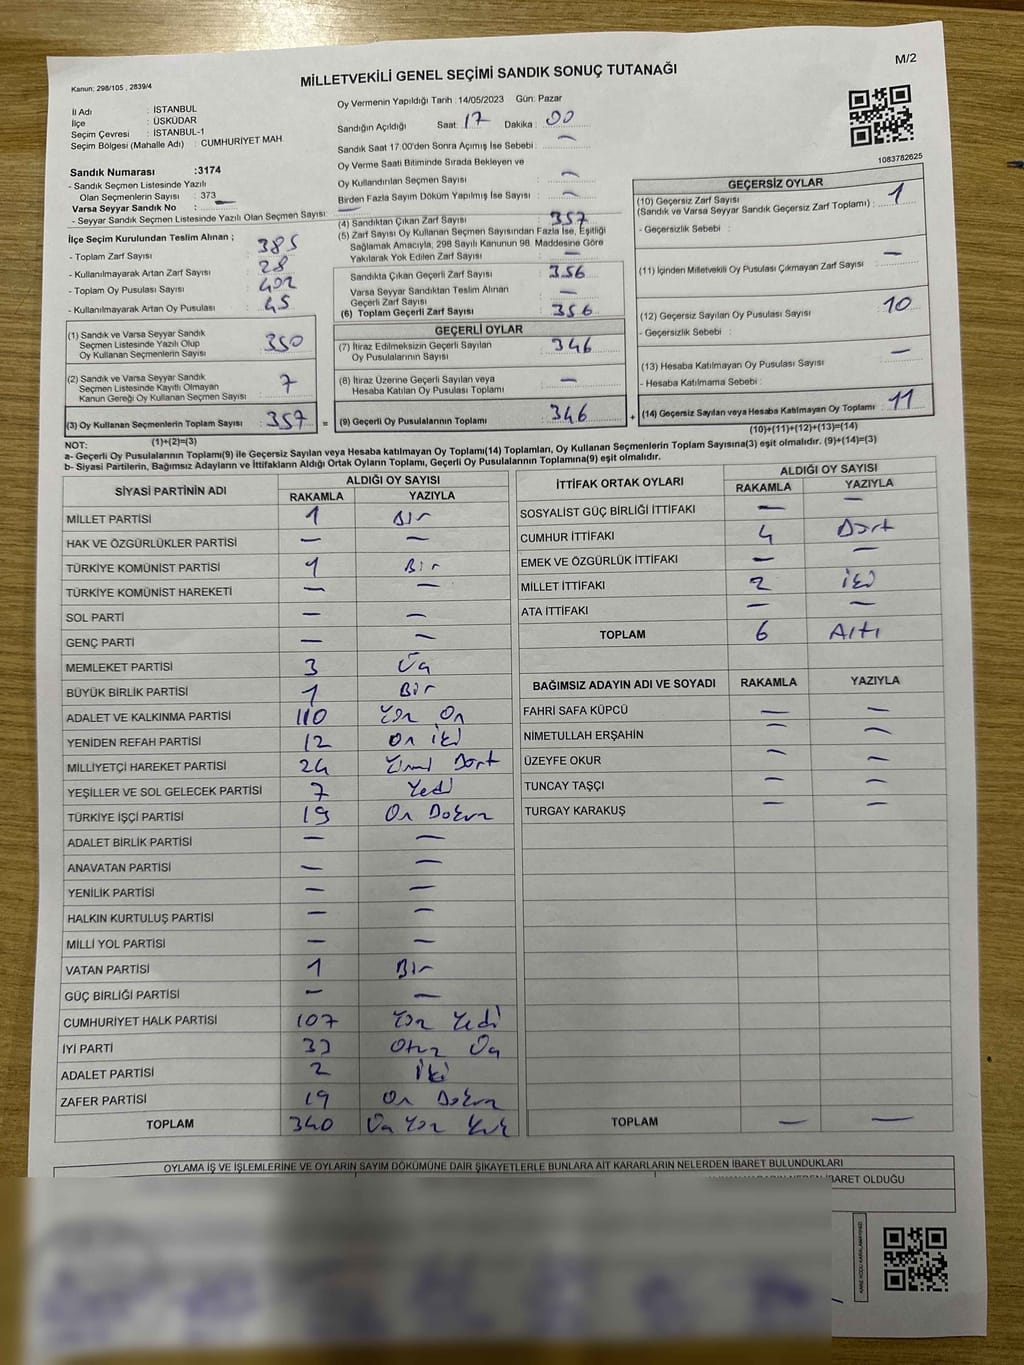 M/2
Kanun: 298/105 , 2839/4
MİLLETVEKİLİ GENEL SEÇİMİ SANDIK SONUÇ TUTANAĞI
İl Adı : İSTANBUL
İlçe : ÜSKÜDAR
Seçim Çevresi : İSTANBUL-1
Seçim Bölgesi (Mahalle Adı) : CUMHURİYET MAH
Sandık Numarası :3174
- Sandık Seçmen Listesinde Yazılı
Olan Seçmenlerin Sayısı : 373
Varsa Seyyar Sandık No : —
- Seyyar Sandık Seçmen Listesinde Yazılı Olan Seçmen Sayısı: —
İlçe Seçim Kurulundan Teslim Alınan ;
- Toplam Zarf Sayısı : 385
- Kullanılmayarak Artan Zarf Sayısı : 28
- Toplam Oy Pusulası Sayısı : 402
- Kullanılmayarak Artan Oy Pusulası : 45
(1) Sandık ve Varsa Seyyar Sandık
Seçmen Listesinde Yazılı Olup
Oy Kullanan Seçmenlerin Sayısı : 350
(2) Sandık ve Varsa Seyyar Sandık
Seçmen Listesinde Kayıtlı Olmayan
Kanun Gereği Oy Kullanan Seçmen Sayısı : 7
(3) Oy Kullanan Seçmenlerin Toplam Sayısı : 357 =
(1)+(2)=(3)
Oy Vermenin Yapıldığı Tarih :14/05/2023 Gün: Pazar
Sandığın Açıldığı Saat: 17 Dakika : 00
Sandık Saat 17:00'den Sonra Açımış İse Sebebi : —
Oy Verme Saati Bitiminde Sırada Bekleyen ve
Oy Kullandırılan Seçmen Sayısı : —
Birden Fazla Sayım Döküm Yapılmış İse Sayısı : —
(4) Sandıktan Çıkan Zarf Sayısı : 357
(5) Zarf Sayısı Oy Kullanan Seçmen Sayısından Fazla İse, Eşitliği
Sağlamak Amacıyla, 298 Sayılı Kanunun 98. Maddesine Göre
Yakılarak Yok Edilen Zarf Sayısı : —
Sandıkta Çıkan Geçerli Zarf Sayısı : 356
Varsa Seyyar Sandıktan Teslim Alınan
Geçerli Zarf Sayısı : —
(6) Toplam Geçerli Zarf Sayısı : 356
GEÇERLİ OYLAR
(7) İtiraz Edilmeksizin Geçerli Sayılan
Oy Pusulalarının Sayısı : 346
(8) İtiraz Üzerine Geçerli Sayılan veya
Hesaba Katılan Oy Pusulası Toplamı : —
(9) Geçerli Oy Pusulalarının Toplamı : 346 +
1083782625
GEÇERSİZ OYLAR
(10) Geçersiz Zarf Sayısı
(Sandık ve Varsa Seyyar Sandık Geçersiz Zarf Toplamı) : 1
- Geçersizlik Sebebi :
(11) İçinden Milletvekili Oy Pusulası Çıkmayan Zarf Sayısı : —
(12) Geçersiz Sayılan Oy Pusulası Sayısı : 10
- Geçersizlik Sebebi :
(13) Hesaba Katılmayan Oy Pusulası Sayısı : —
- Hesaba Katılmama Sebebi :
(14) Geçersiz Sayılan veya Hesaba Katılmayan Oy Toplamı : 11
(10)+(11)+(12)+(13)=(14)
NOT:
a- Geçerli Oy Pusulalarının Toplamı(9) ile Geçersiz Sayılan veya Hesaba Katılmayan Oy Toplamı(14) Toplamları, Oy Kullanan Seçmenlerin Toplam Sayısına(3) eşit olmalıdır. (9)+(14)=(3)
b- Siyasi Partilerin, Bağımsız Adayların ve İttifakların Aldığı Ortak Oyların Toplamı, Geçerli Oy Pusulalarının Toplamına(9) eşit olmalıdır.
SİYASİ PARTİNİN ADI ALDIĞI OY SAYISI
RAKAMLA YAZIYLA
MİLLET PARTİSİ 1 Bir
HAK VE ÖZGÜRLÜKLER PARTİSİ — —
TÜRKİYE KOMÜNİST PARTİSİ 1 Bir
TÜRKİYE KOMÜNİST HAREKETİ — —
SOL PARTİ — —
GENÇ PARTİ — —
MEMLEKET PARTİSİ 3 Üç
BÜYÜK BİRLİK PARTİSİ 1 Bir
ADALET VE KALKINMA PARTİSİ 110 Yüz On
YENİDEN REFAH PARTİSİ 12 On iki
MİLLİYETÇİ HAREKET PARTİSİ 24 Yirmi Dört
YEŞİLLER VE SOL GELECEK PARTİSİ 7 Yedi
TÜRKİYE İŞÇİ PARTİSİ 19 On Dokuz
ADALET BİRLİK PARTİSİ — —
ANAVATAN PARTİSİ — —
YENİLİK PARTİSİ — —
HALKIN KURTULUŞ PARTİSİ — —
MİLLİ YOL PARTİSİ — —
VATAN PARTİSİ 1 Bir
GÜÇ BİRLİĞİ PARTİSİ — —
CUMHURİYET HALK PARTİSİ 107 Yüz Yedi
İYİ PARTİ 33 Otuz Üç
ADALET PARTİSİ 2 İki
ZAFER PARTİSİ 19 On Dokuz
TOPLAM 340 Üç Yüz Kırk
İTTİFAK ORTAK OYLARI ALDIĞI OY SAYISI
RAKAMLA YAZIYLA
SOSYALİST GÜÇ BİRLİĞİ İTTİFAKI — —
CUMHUR İTTİFAKI 4 Dört
EMEK VE ÖZGÜRLÜK İTTİFAKI — —
MİLLET İTTİFAKI 2 İki
ATA İTTİFAKI — —
TOPLAM 6 Altı
BAĞIMSIZ ADAYIN ADI VE SOYADI RAKAMLA YAZIYLA
FAHRİ SAFA KÜPCÜ — —
NİMETULLAH ERŞAHİN — —
ÜZEYFE OKUR — —
TUNCAY TAŞÇI — —
TURGAY KARAKUŞ — —
TOPLAM — —
OYLAMA İŞ VE İŞLEMLERİNE VE OYLARIN SAYIM DÖKÜMÜNE DAİR ŞİKAYETLERLE BUNLARA AİT KARARLARIN NELERDEN İBARET BULUNDUKLARI
İBARET OLDUĞU